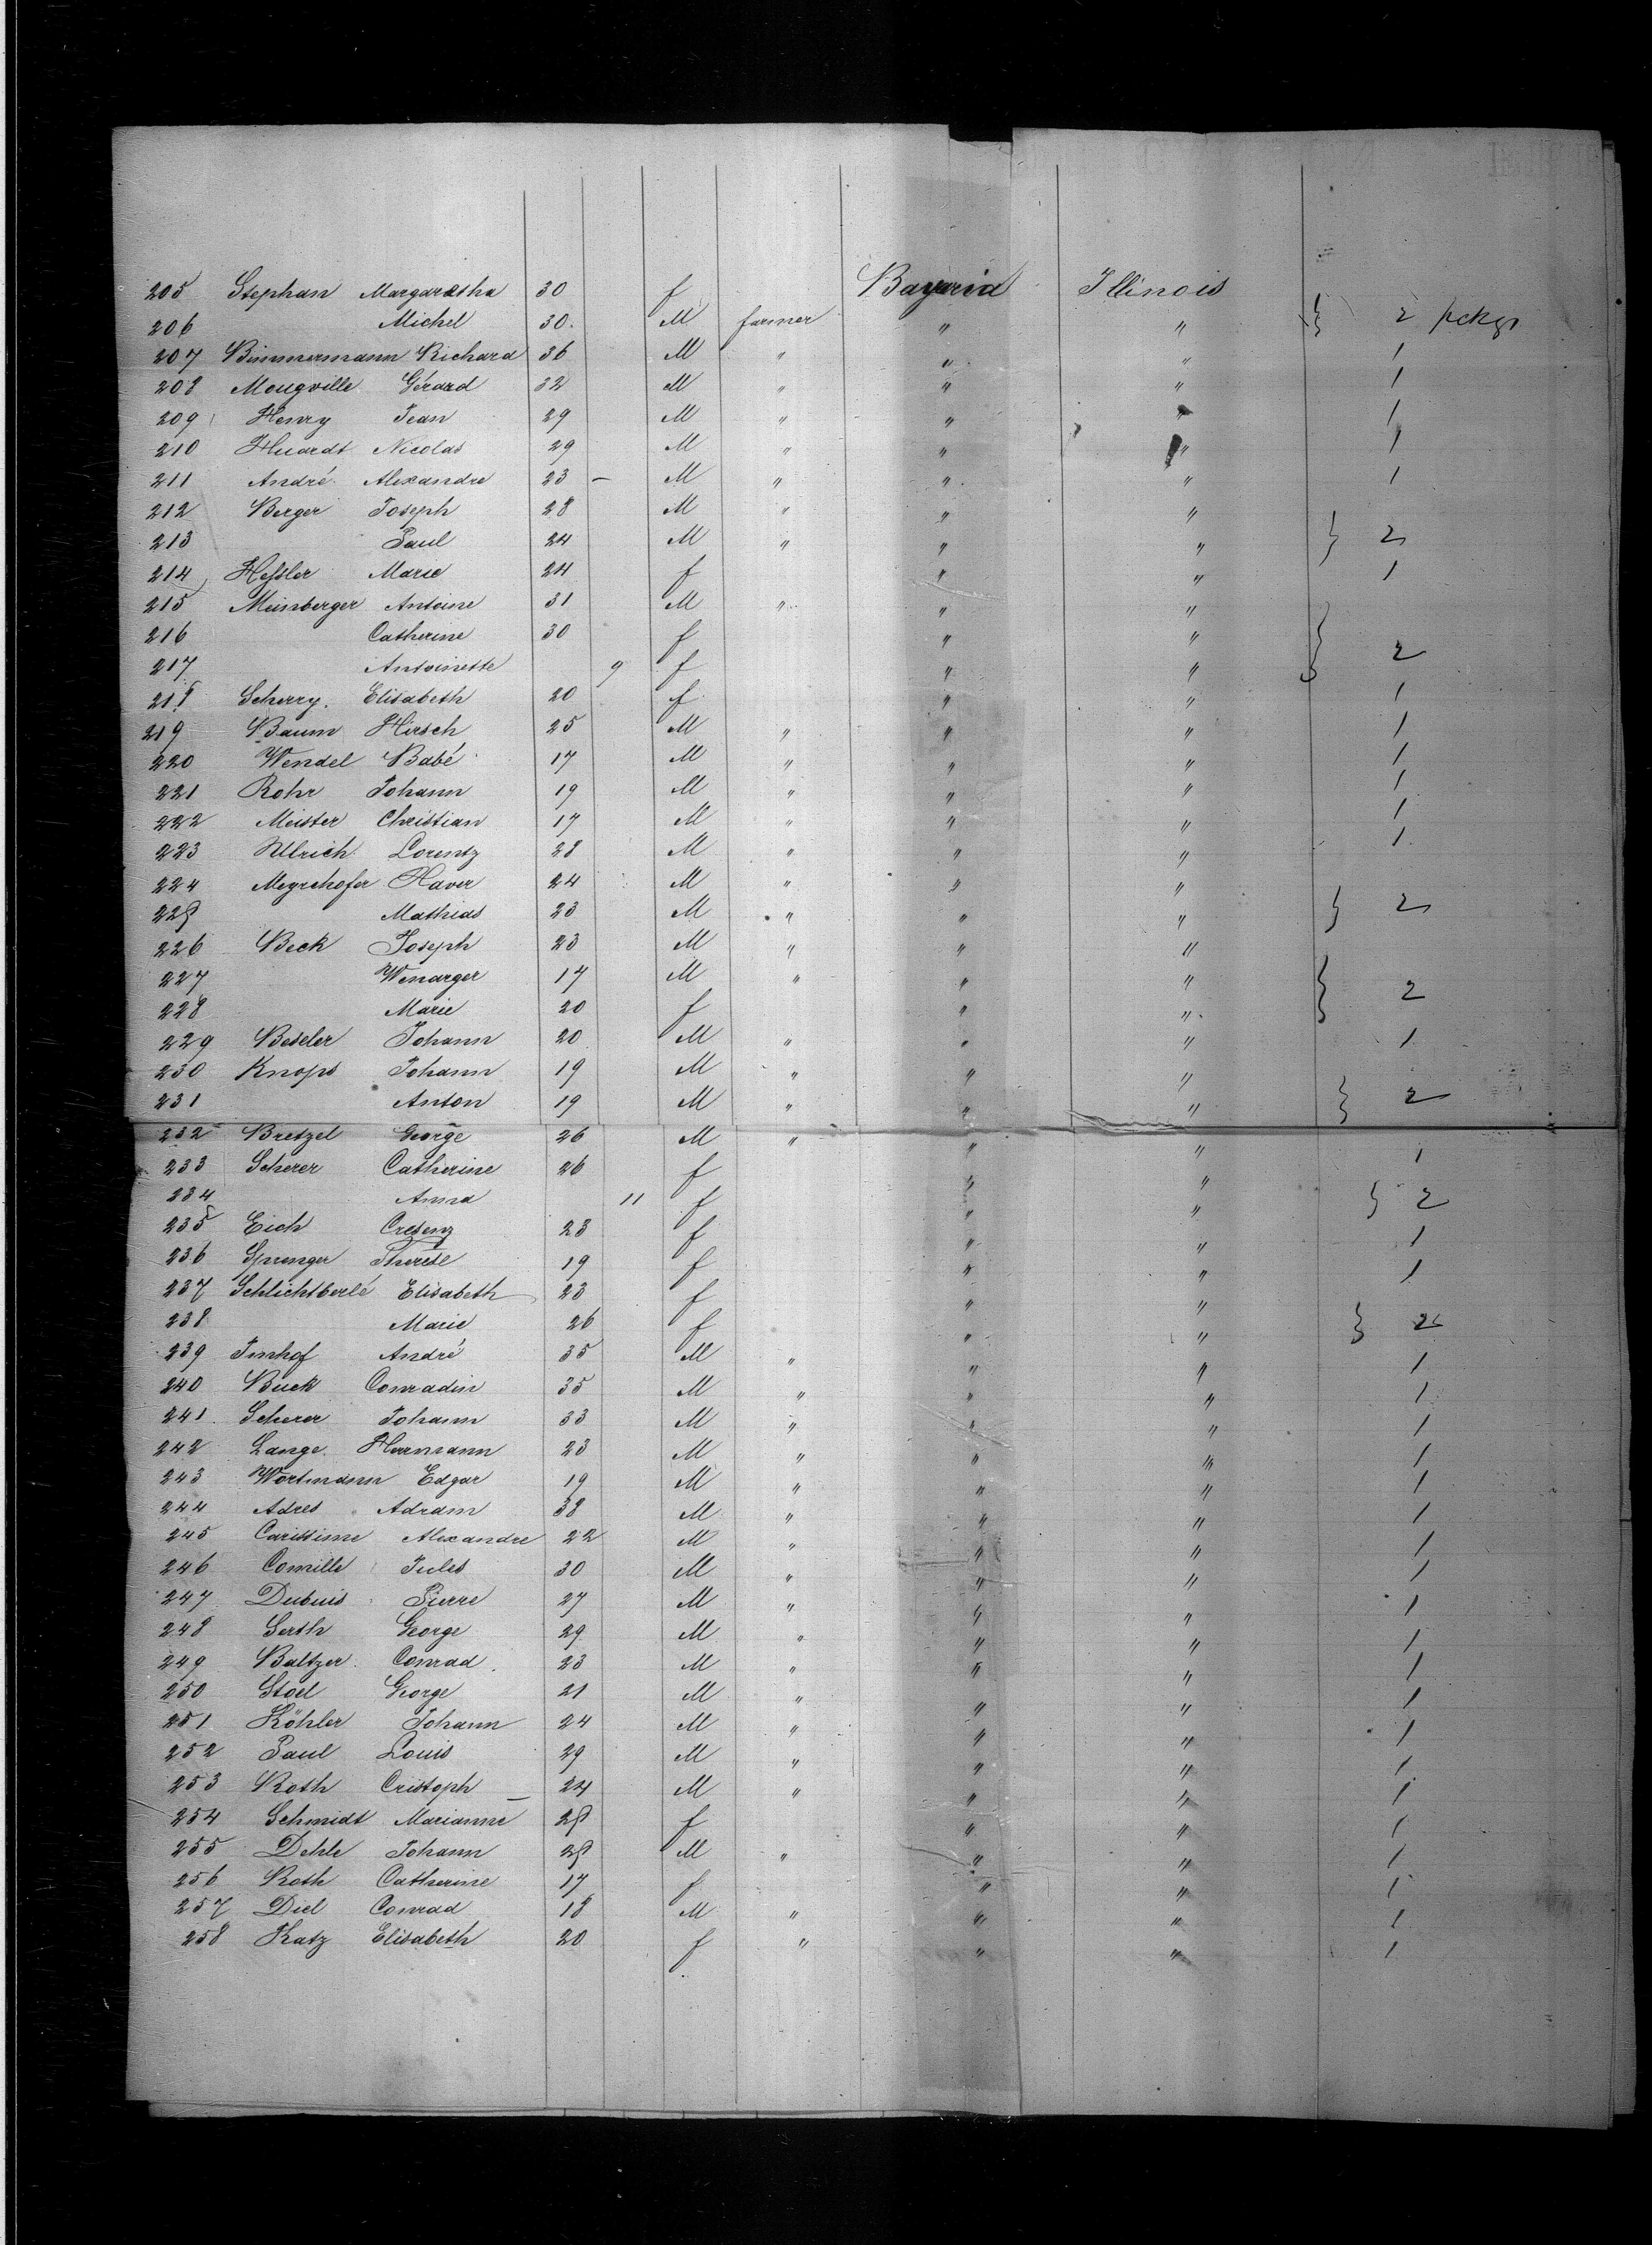 205 Stephan Margaretha 30 f Bavaria Illinois
206 Michel 30. M farmer " " } 2 pckgs
207 Bimmermann Richard 36 M " " " 1
208 Mougville Gérard 32 M " " " 1
209 Henry Jean 29 M " " " 1
210 Huardt Nicolas 29 M " " " 1
211 André Alexandre 23 — M " " " 1
212 Berger Joseph 28 M " " "
213 Paul 24 M " " " } 2
214 Hessler Marie 24 f " " 1
215 Meinberger Antoine 31 M " " "
216 Catherine 30 f " "
217 Antoinette 9 f " " } 2
218 Scherry. Elisabeth 20 f " " 1
219 Baum Hirsch 25 M " " " 1
220 Wendel Babé 17 M " " " 1
221 Rohr Johann 19 M " " " 1
222 Meister Christian 17 M " " " 1
223 Ullrich Lorentz 28 M " " " 1
224 Meyrehofer Xaver 24 M " " "
225 Mathias 23 M " " " } 2
226 Beck Joseph 23 M " " "
227 Wenarger 17 M " " "
228 Marie 20 f " " } 2
229 Beseler Johann 20 M " " " 1
230 Knops Johann 19 M " " "
231 Anton 19 M " " " } 2
232 Bretzel George 26 M " " " 1
233 Scherer Catherine 26 f " "
234 Anna 11 f " " } 2
235 Eich Cresenz 23 f " " 1
236 Sprenger Therese 19 f " " 1
237 Schlichtberlé Elisabeth 23 f " "
238 Marie 26 f " " } 2
239 Imhof André 35 M " " " 1
240 Buck Conradin 35 M " " " 1
241. Scherer Johann 33 M " " " 1
242 Lange. Herrmann 23 M " " " 1
243 Wortmann Edgar 19 M " " " 1
244 Adres Adram 38 M " " " 1
245 Carissime Alexandre 22 M " " " 1
246 Comille Jules 30 M " " " 1
247 Dubuis Pierre 27 M " " " 1
248 Serth George 29 M " " " 1
249 Baltzer Conrad 23 M " " " 1
250 Stoel George 21 M " " " 1
251 Köhler Johann 24 M " " " 1
252 Paul Louis 29 M " " " 1
253 Roth Cristoph 24 M " " " 1
254 Schmidt Marianne 25 f " " 1
255 Dehle Johann 25 M " " " 1
256 Roth Catherine 17 f " " 1
257 Diel Conrad 18 M " " " 1
258 Katz Elisabeth 20 f " " " 1